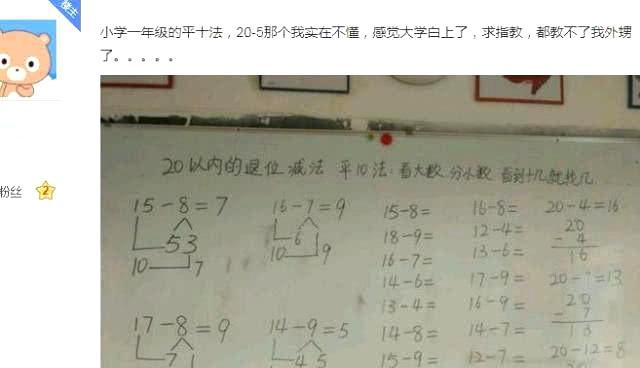 楼主
小学一年级的平十法，20-5那个我实在不懂，感觉大学白上了，求指教，都教不了我外甥
了。。。。。
粉丝 2
20以内的退位减法 平10法：看大数 分小数 看到十几就找几
15-8=7 16-7=9 15-8= 16-8= 20-4=16
53 6 18-9= 12-4= 20
10 7 10 9 16-7= 13-6= -4
16
14-6= 17-9= 20- =13
13-4= 16-9= 20
-7
17-8=9 14-9=5 14-8= 14-7= 13
7 1 4 5 15-9= 12-7= 20-12=8